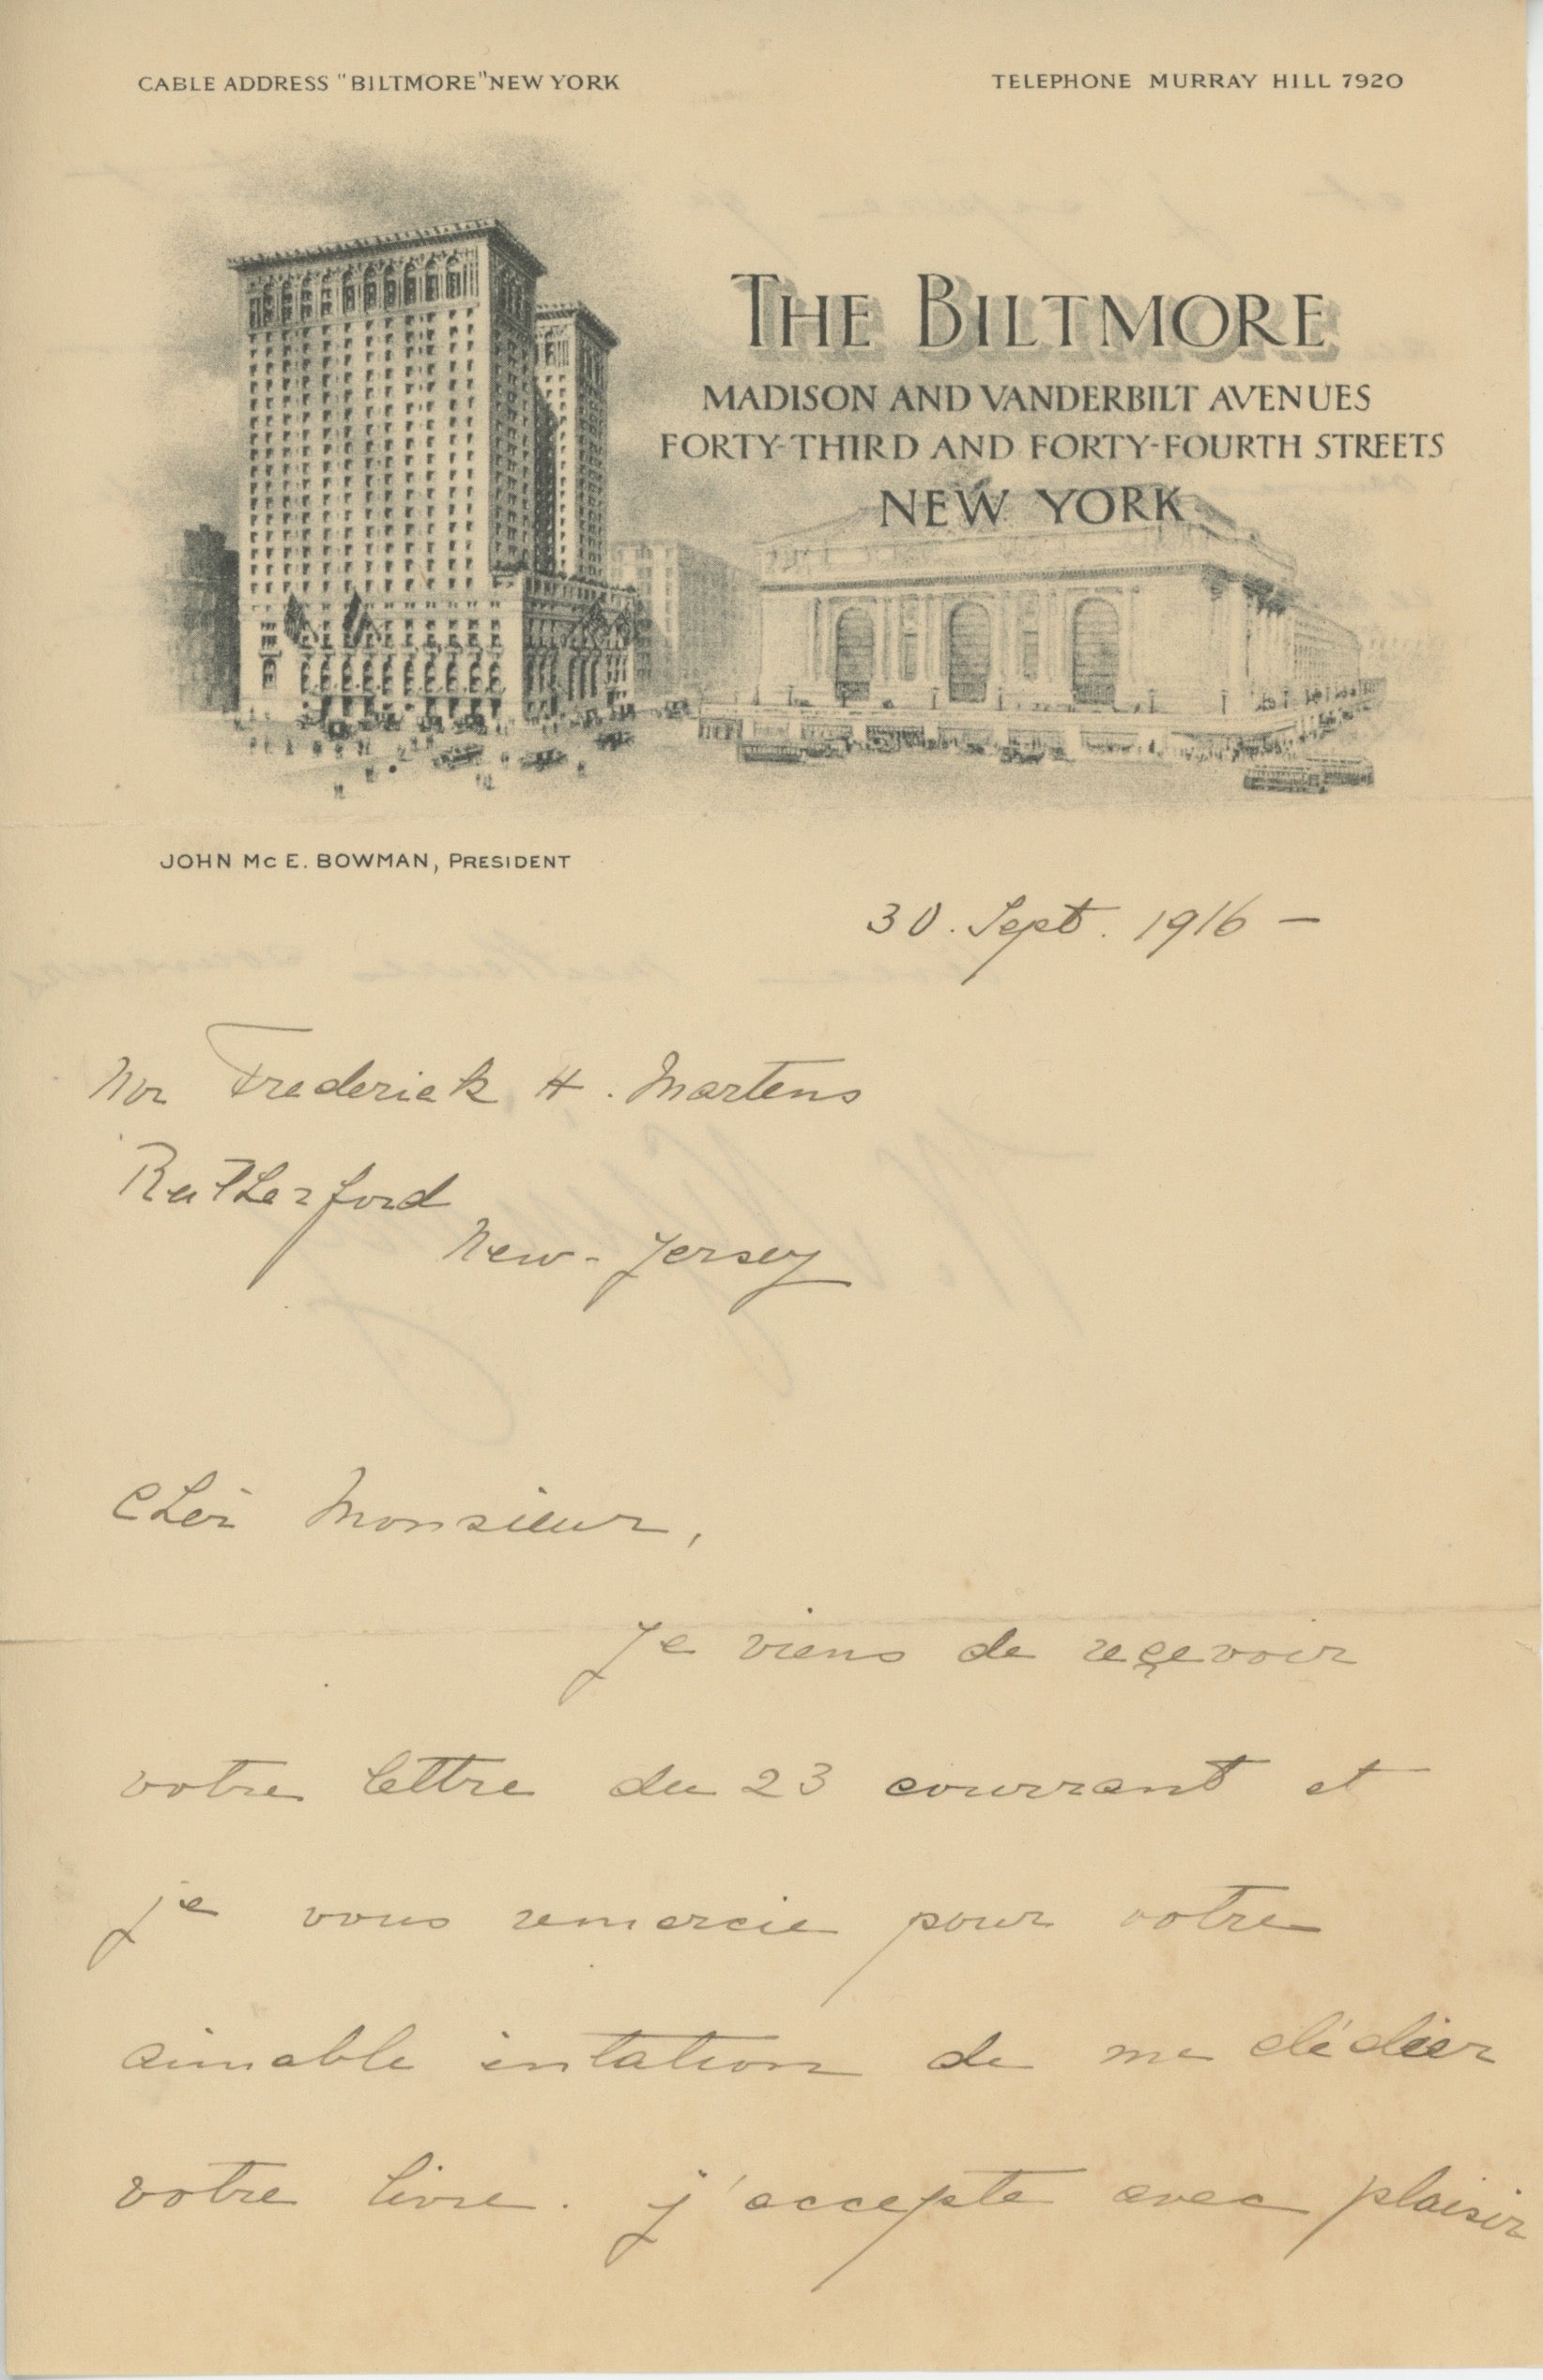 CABLE ADDRESS "BILTMORE" NEW YORK
TELEPHONE MURRAY HILL 7920
THE BILTMORE
MADISON AND VANDERBILT AVENUES
FORTY-THIRD AND FORTY-FOURTH STREETS
NEW YORK
JOHN Mc E. BOWMAN, PRESIDENT
30. Sept. 1916 –
Mr Frederick H. Martens
Rutherford
New-Jersey
Cher Monsieur,
Je viens de reçevoir
votre lettre du 23 courrant et
je vous remercie pour votre
aimable intation de me dédier
votre livre. j'accepte avec plaisir